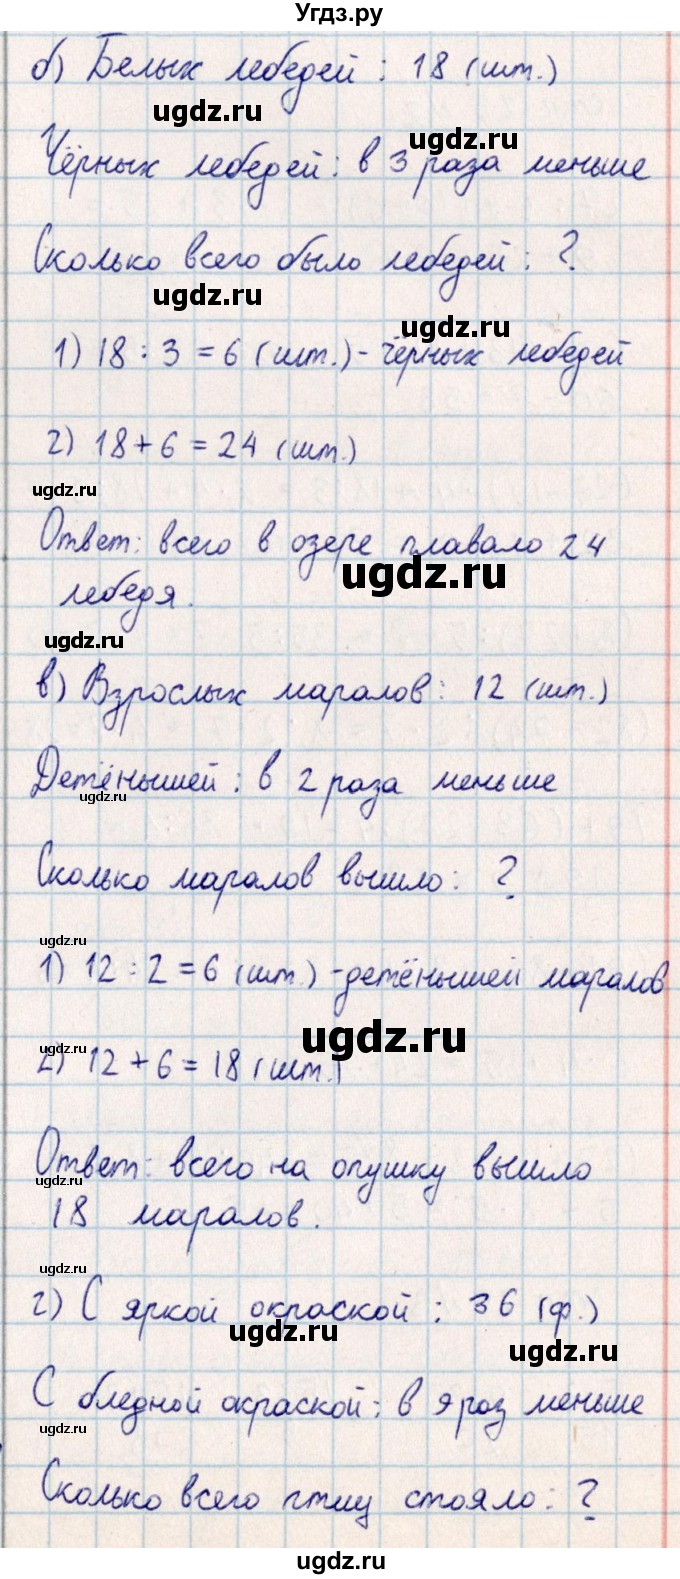 Угдз.ру
б) Белых лебедей : 18 (шт.)
ugdz.ru
ugdz.ru
Чёрных лебедей : в 3 раза меньше
Сколько всего было лебедей : ?
ugdz.ru
ugdz.ru
1) 18 : 3 = 6 (шт.) - чёрных лебедей
2) 18 + 6 = 24 (шт.)
ugdz.ru
Ответ: всего в озере плавало 24
ugdz.ru
лебедя.
ugdz.ru
в) Взрослых маралов : 12 (шт.)
Детёнышей : в 2 раза меньше
ugdz.ru
Сколько маралов вышло : ?
ugdz.ru
1) 12 : 2 = 6 (шт.) - детёнышей маралов
ugdz.ru
2) 12 + 6 = 18 (шт.)
Ответ: всего на опушку вышло
ugdz.ru
18 маралов.
ugdz.ru
г) С яркой окраской : 36 (ф.)
ugdz.ru
ugdz.ru
С бледной окраской : в 9 раз меньше
ugdz.ru
Сколько всего птиц стояло : ?
ugdz.ru